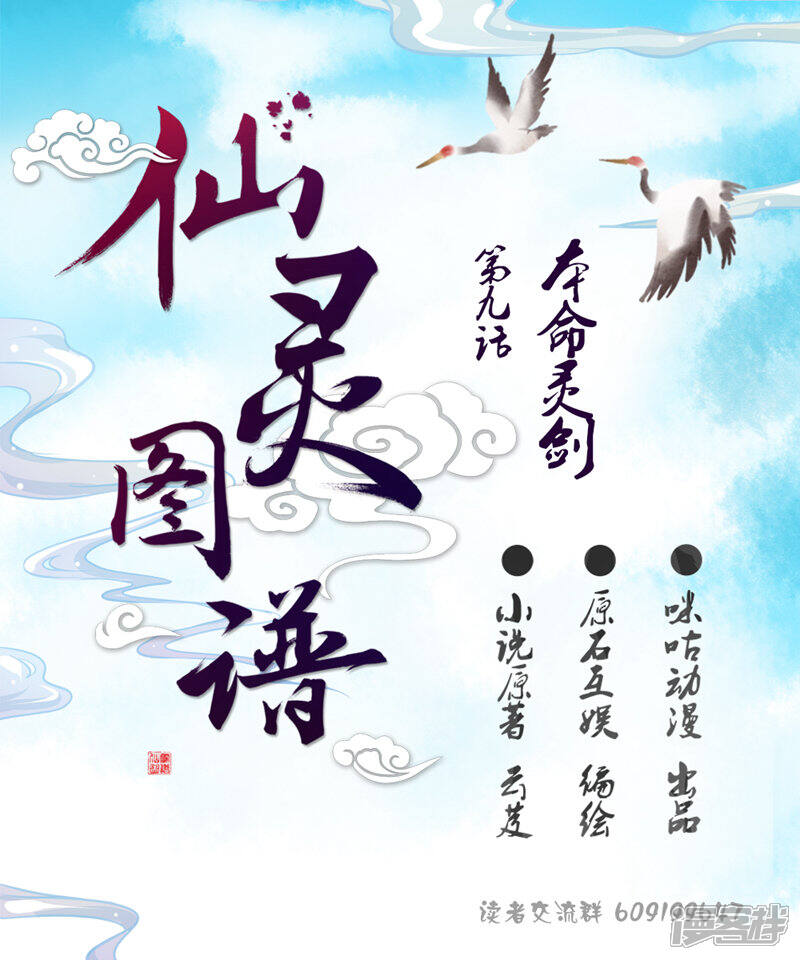 仙灵图谱
本命灵剑
第九话
咪咕动漫 出品
原石互娱 编绘
小说原著 云芨
读者交流群 609199647
漫客栈